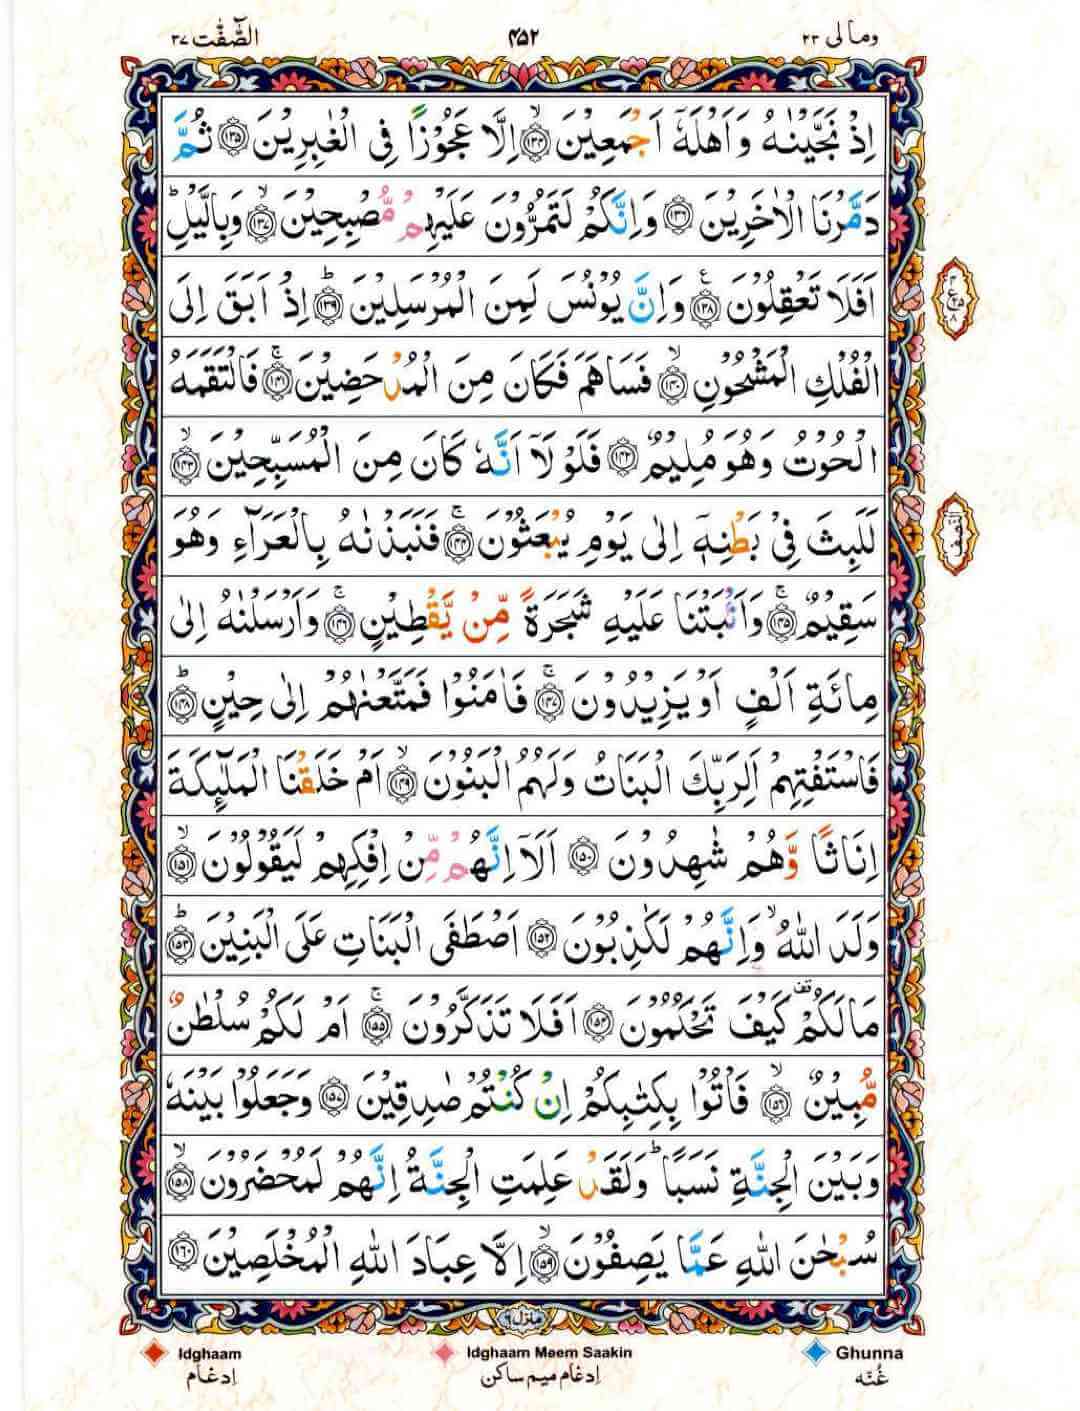 وما لی ۲۳ ۴۵۲ الصّٰٓفّٰت ۳۷
اِذْ نَجَّيْنٰهُ وَاَهْلَهٗۤ اَجْمَعِيْنَ ﴿۱۳۴﴾ۙ اِلَّا عَجُوْزًا فِى الْغٰبِرِيْنَ ﴿۱۳۵﴾ ثُمَّ
دَمَّرْنَا الْاٰخَرِيْنَ ﴿۱۳۶﴾ وَاِنَّكُمْ لَتَمُرُّوْنَ عَلَيْهِمْ مُّصْبِحِيْنَ ﴿۱۳۷﴾ۙ وَبِالَّيْلِؕ
اَفَلَا تَعْقِلُوْنَ ﴿۱۳۸﴾ع وَاِنَّ يُوْنُسَ لَمِنَ الْمُرْسَلِيْنَ ﴿۱۳۹﴾ؕ اِذْ اَبَقَ اِلَى
الْفُلْكِ الْمَشْحُوْنِ ﴿۱۴۰﴾ۙ فَسَاهَمَ فَكَانَ مِنَ الْمُدْحَضِيْنَ ﴿۱۴۱﴾ۚ فَالْتَقَمَهُ
الْحُوْتُ وَهُوَ مُلِيْمٌ ﴿۱۴۲﴾ فَلَوْلَاۤ اَنَّهٗ كَانَ مِنَ الْمُسَبِّحِيْنَ ﴿۱۴۳﴾ۙ
لَلَبِثَ فِىْ بَطْنِهٖۤ اِلٰى يَوْمِ يُبْعَثُوْنَ ﴿۱۴۴﴾ۚ فَنَبَذْنٰهُ بِالْعَرَآءِ وَهُوَ
سَقِيْمٌ ﴿۱۴۵﴾ۚ وَاَنْۢبَتْنَا عَلَيْهِ شَجَرَةً مِّنْ يَّقْطِيْنٍ ﴿۱۴۶﴾ۚ وَاَرْسَلْنٰهُ اِلٰى
مِائَةِ اَلْفٍ اَوْ يَزِيْدُوْنَ ﴿۱۴۷﴾ۚ فَاٰمَنُوْا فَمَتَّعْنٰهُمْ اِلٰى حِيْنٍ ﴿۱۴۸﴾ؕ
فَاسْتَفْتِهِمْ اَلِرَبِّكَ الْبَنَاتُ وَلَهُمُ الْبَنُوْنَ ﴿۱۴۹﴾ۙ اَمْ خَلَقْنَا الْمَلٰٓئِكَةَ
اِنَاثًا وَّهُمْ شٰهِدُوْنَ ﴿۱۵۰﴾ اَلَاۤ اِنَّهُمْ مِّنْ اِفْكِهِمْ لَيَقُوْلُوْنَ ﴿۱۵۱﴾ۙ
وَلَدَ اللّٰهُۙ وَاِنَّهُمْ لَكٰذِبُوْنَ ﴿۱۵۲﴾ اَصْطَفَى الْبَنَاتِ عَلَى الْبَنِيْنَ ﴿۱۵۳﴾ؕ
مَا لَكُمْقف كَيْفَ تَحْكُمُوْنَ ﴿۱۵۴﴾ اَفَلَا تَذَكَّرُوْنَ ﴿۱۵۵﴾ۚ اَمْ لَكُمْ سُلْطٰنٌ
مُّبِيْنٌ ﴿۱۵۶﴾ۙ فَاْتُوْا بِكِتٰبِكُمْ اِنْ كُنْتُمْ صٰدِقِيْنَ ﴿۱۵۷﴾ وَجَعَلُوْا بَيْنَهٗ
وَبَيْنَ الْجِنَّةِ نَسَبًاؕ وَلَقَدْ عَلِمَتِ الْجِنَّةُ اِنَّهُمْ لَمُحْضَرُوْنَ ﴿۱۵۸﴾ۙ
سُبْحٰنَ اللّٰهِ عَمَّا يَصِفُوْنَ ﴿۱۵۹﴾ۙ اِلَّا عِبَادَ اللّٰهِ الْمُخْلَصِيْنَ ﴿۱۶۰﴾
ع ۲۵ ۸
النصف
منزل ۶
Idghaam Idghaam Meem Saakin Ghunna
اِدغام اِدغام میم ساکن غُنّه